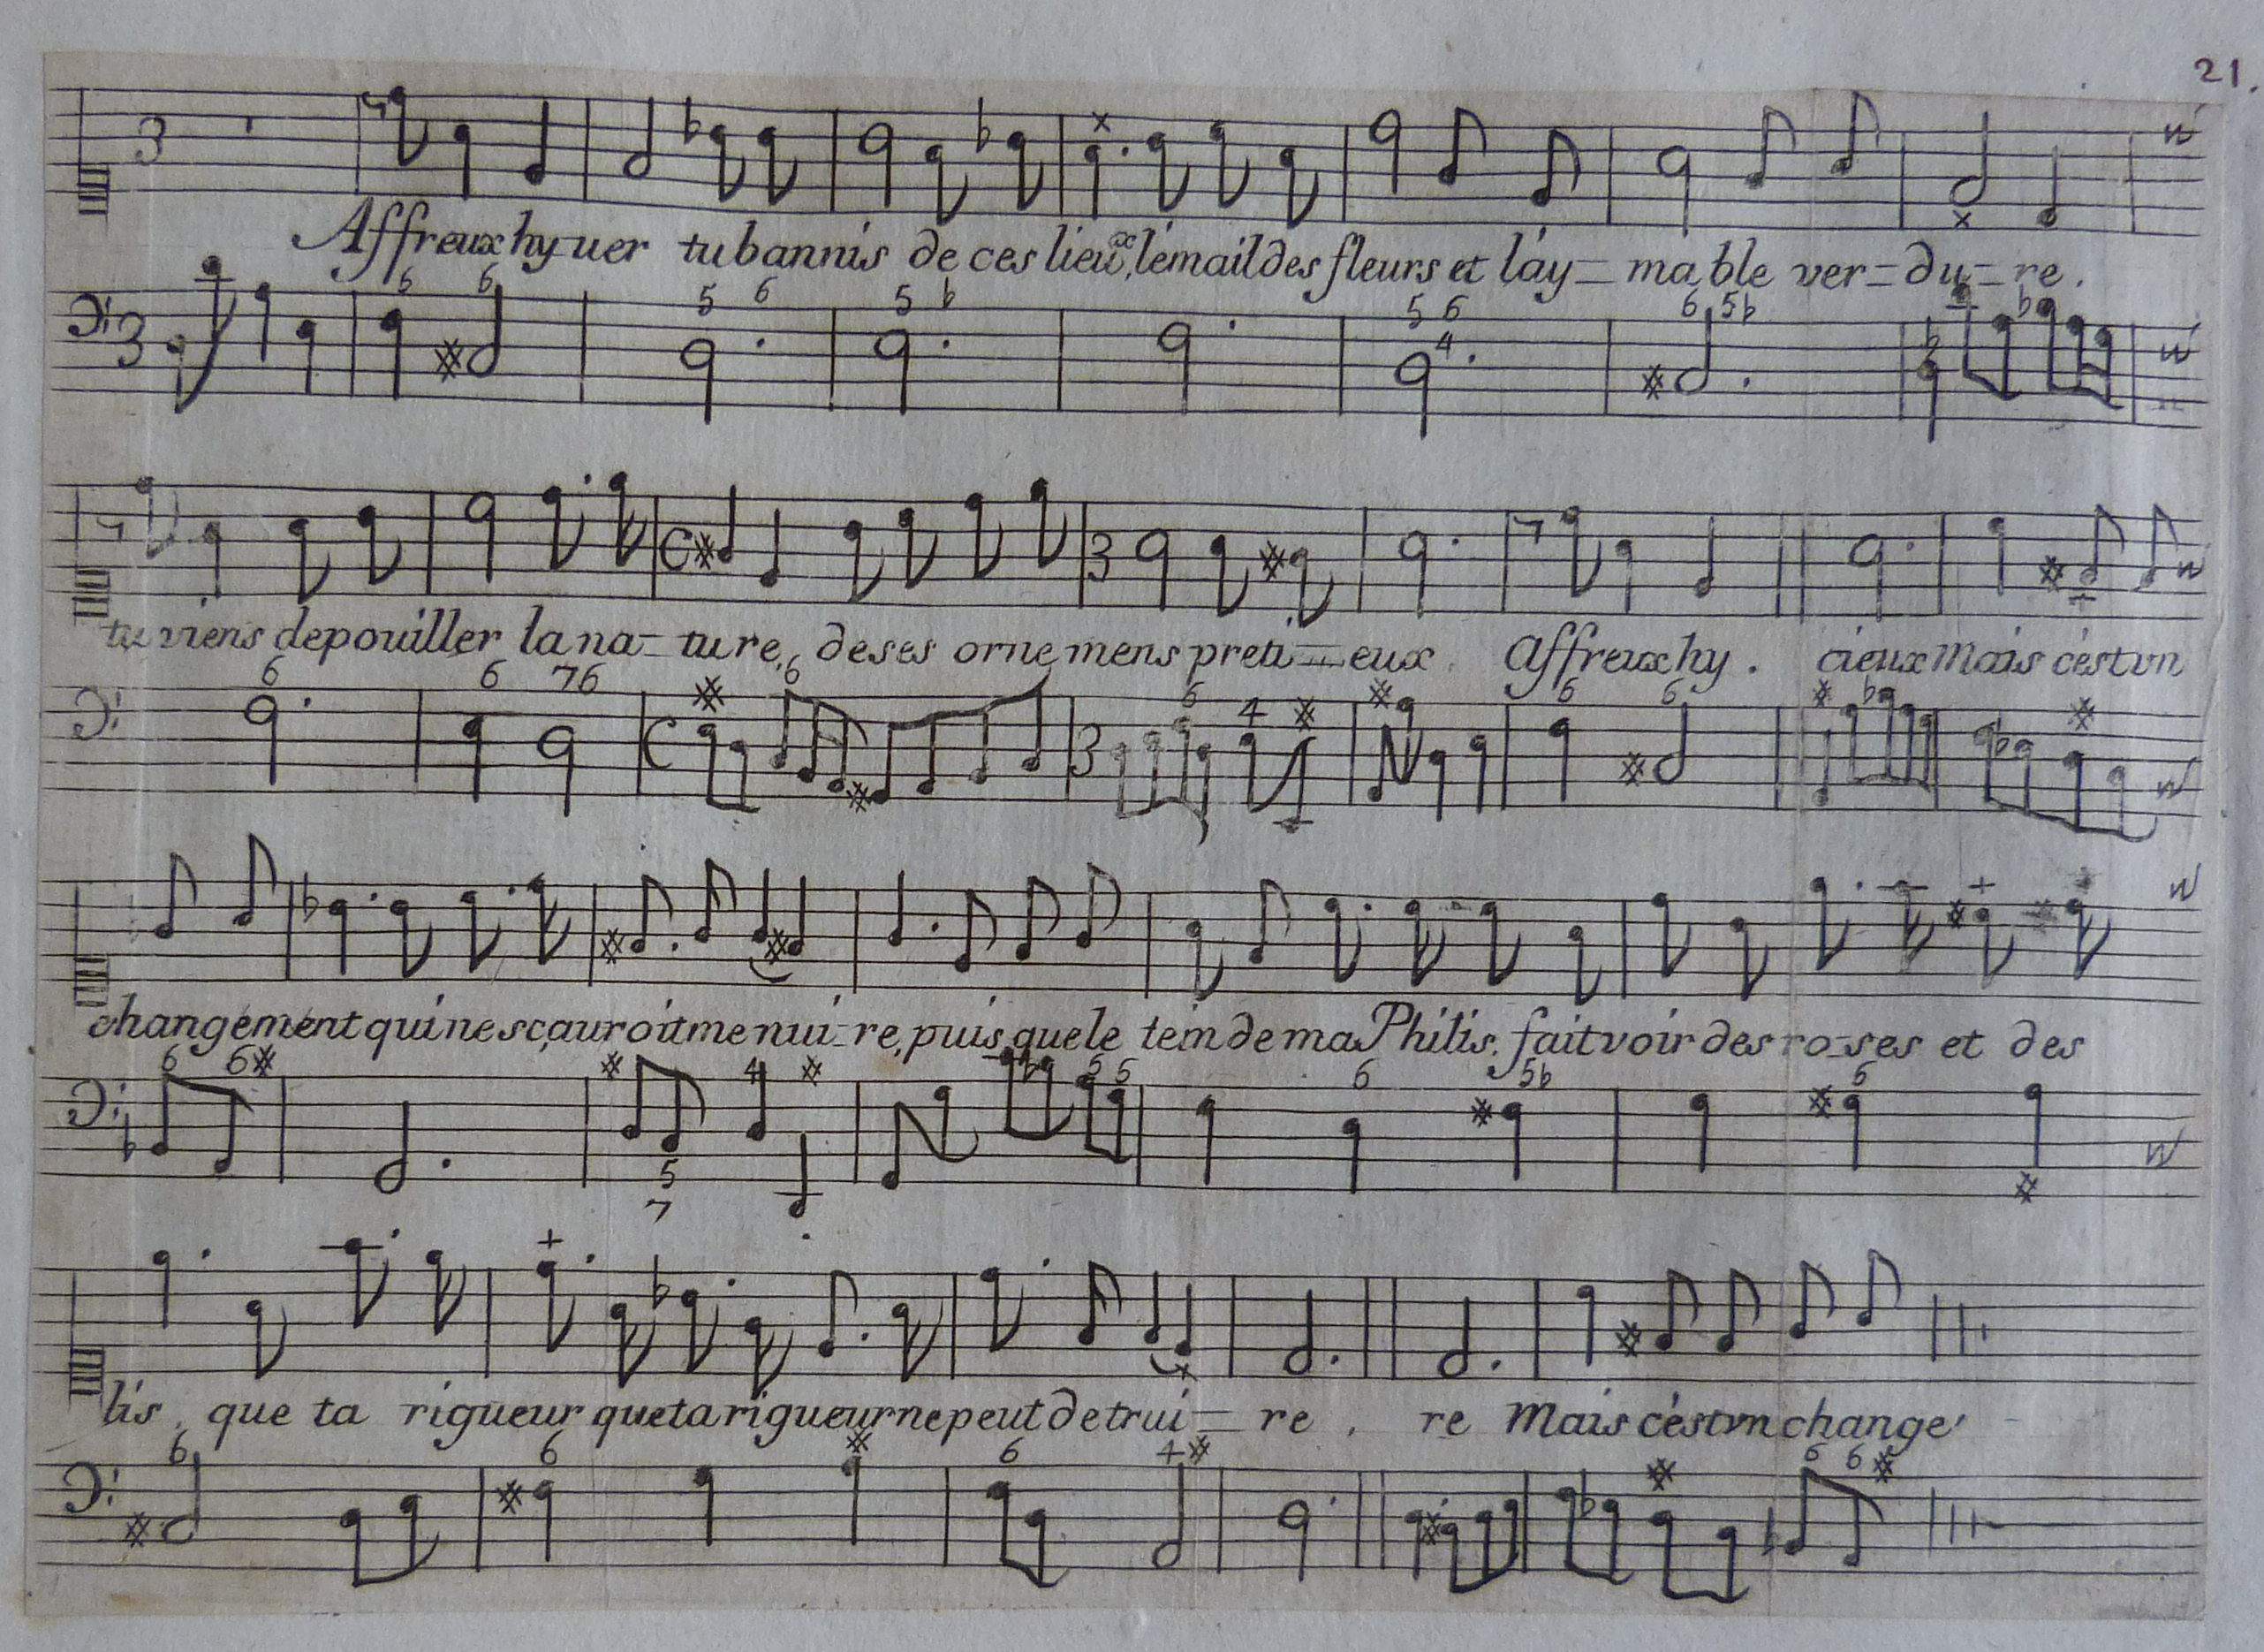 21.
3
Affreux hyuer tu bannis de ces lieux, lémail des fleurs et láy=ma ble ver=du=re.
6 6 5 6 5 b 5 6 4 6 5b
3
tu viens depouiller la na=tu re, de ses orne mens preti=eux. affreux hy. cieux Mais cést vn
6 6 76 6 6 4 6 6
C 3
changément qui ne sçauroit me nui=re, puis que le tein de ma Philis. fait voir des ro=ses et des
6 6 4 6 5 6 5b 6
5
7
lis, que ta rigueur que ta rigueur ne peut detrui=re, re Mais cést vn change
6 6 6 4 6 6